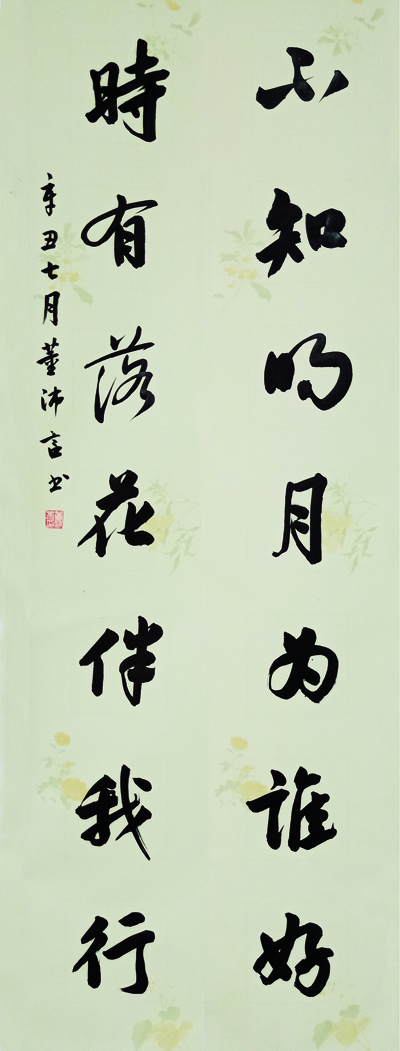 不知明月为谁好
時有落花伴我行
辛丑七月董沛言书